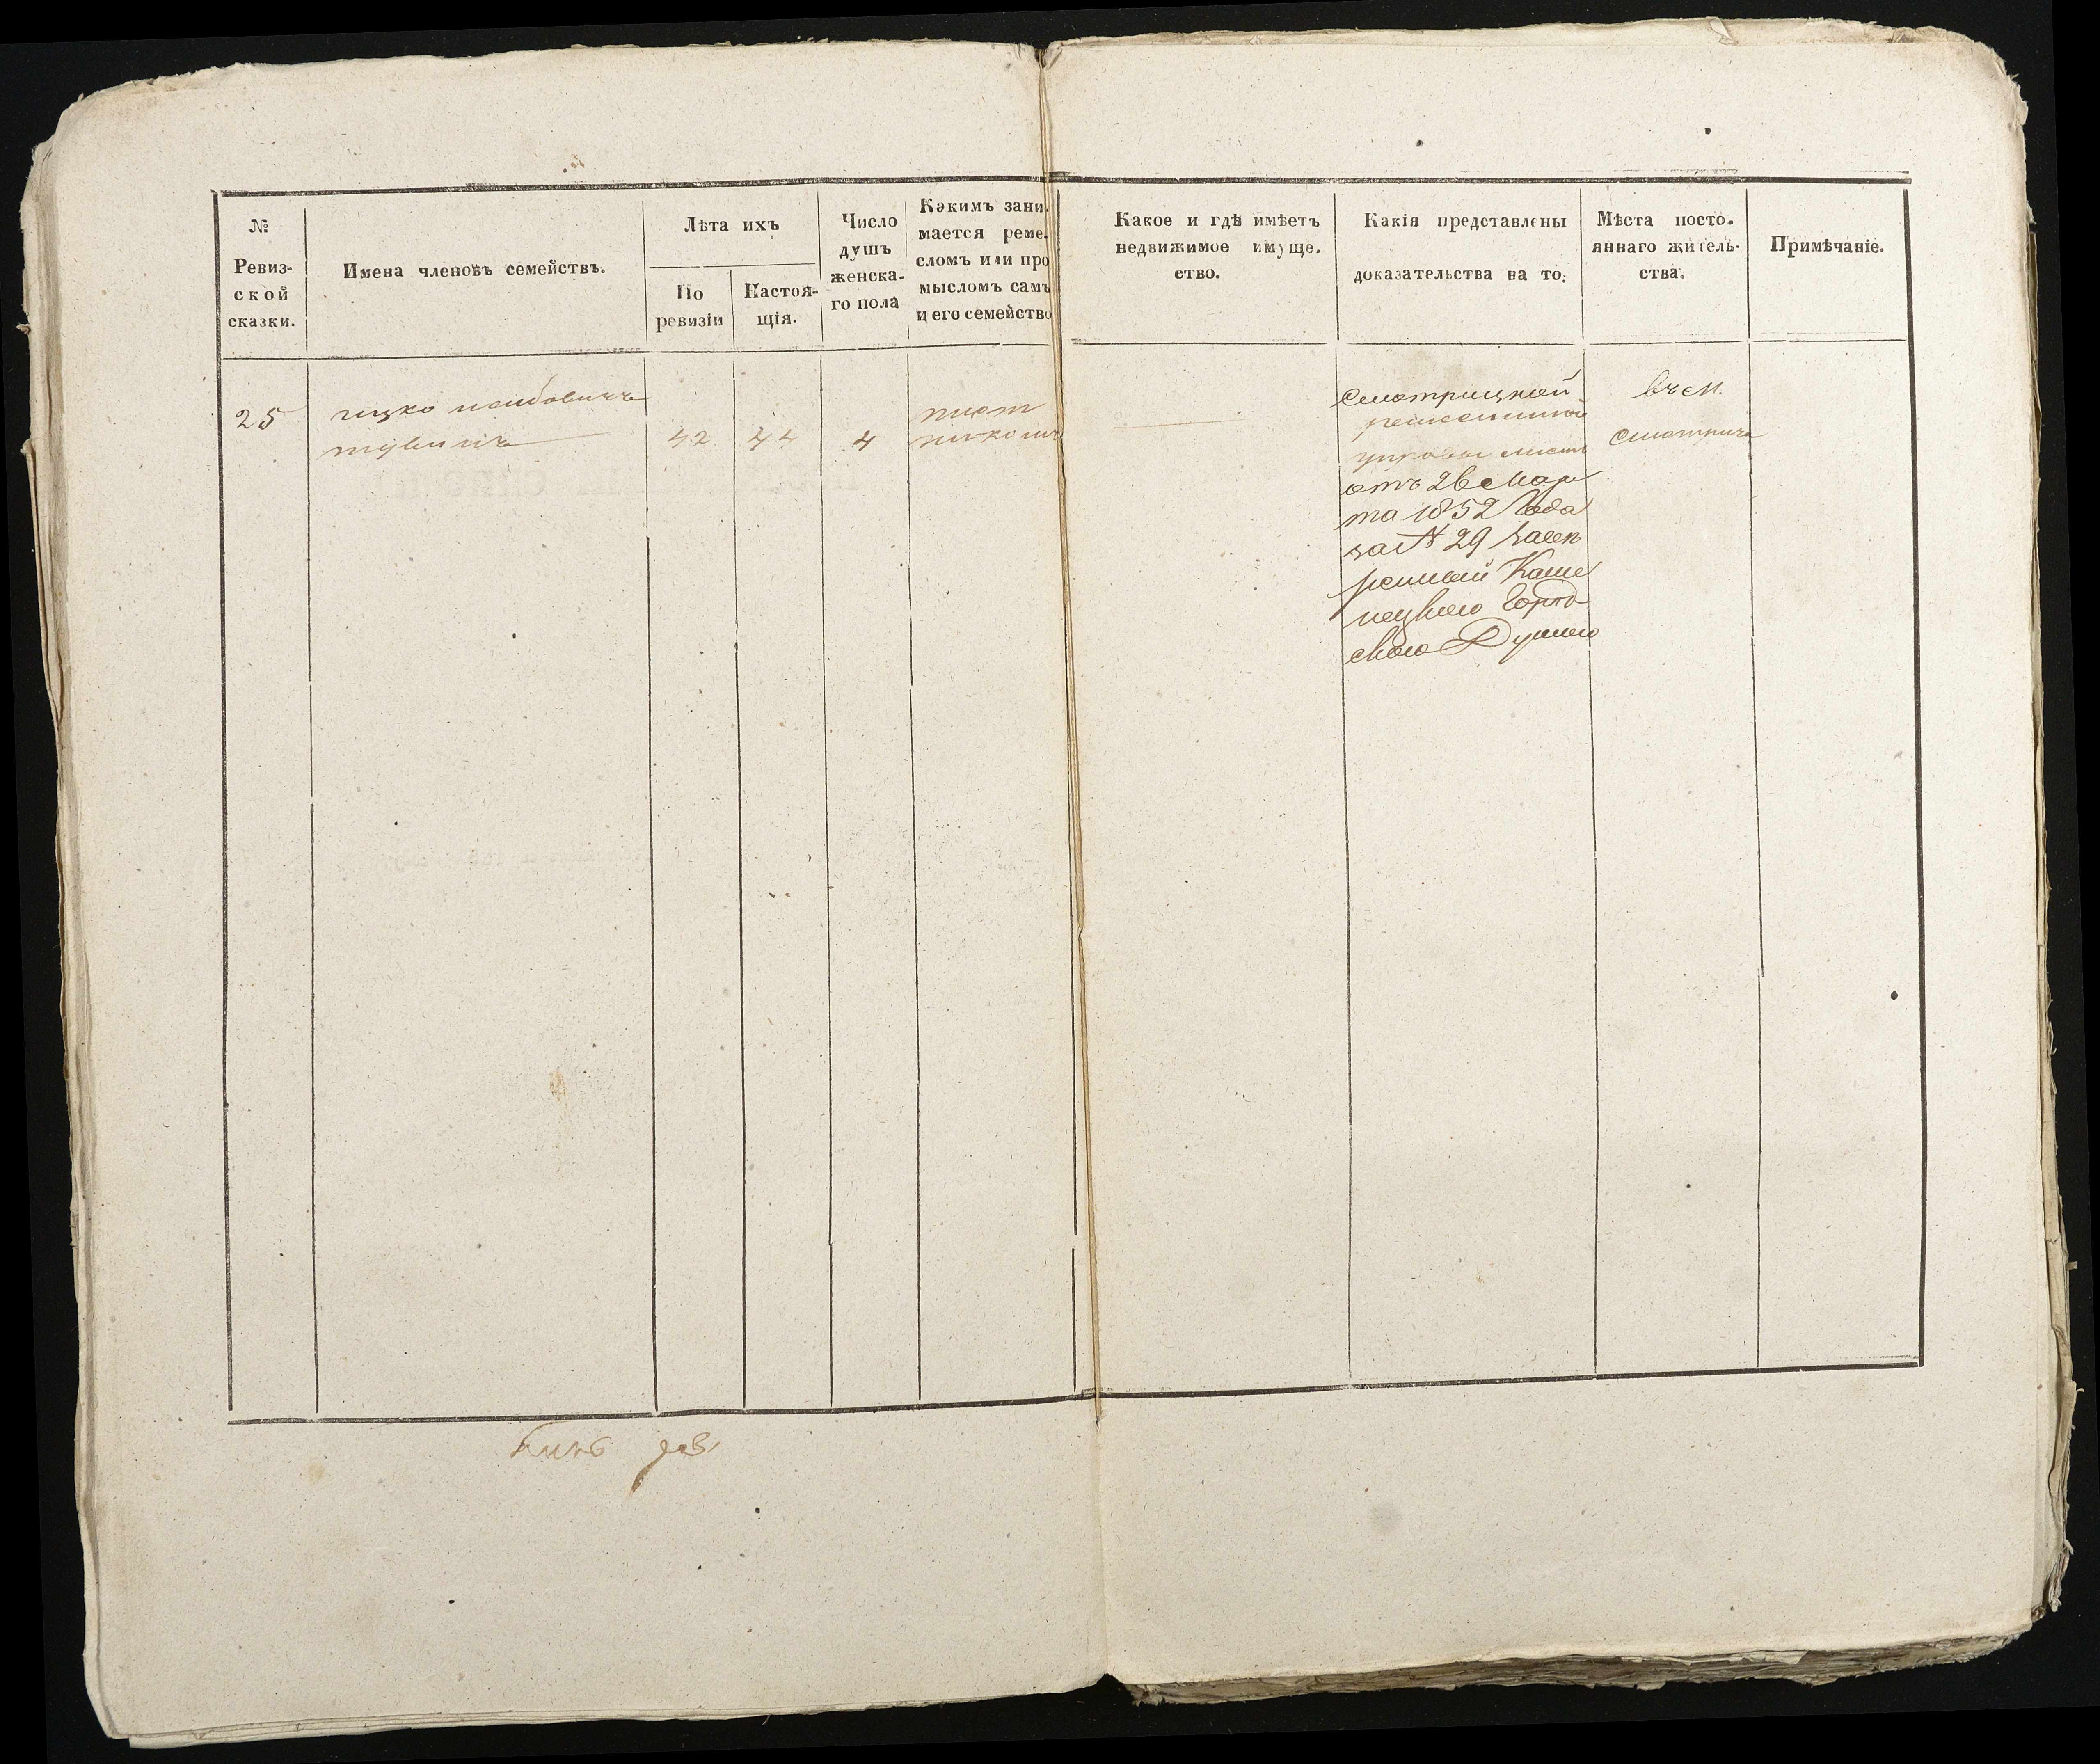 № Ревизской сказки.
Имена членовъ семействъ.
Лѣта ихъ
По ревизіи
Настоящія.
Число
душъ
женска-
го пола
Какимъ зани-
мается реме-
сломъ или про
мысломъ самъ
и его семейство
Какое и гдѣ имѣетъ
недвижимое имуще-
ство.
Какія представлены
доказательства на то:
Мѣста посто-
яннаго житель-
ства.
Примѣчаніе.
25
ицко
42
44
4
Смотрицкой
ремесленной
управы листъ
отъ 26 Мар
та 1852 Года
за № 29 Засви
Каме
нецкою Город
ского Думою
въ м.
Смотрича